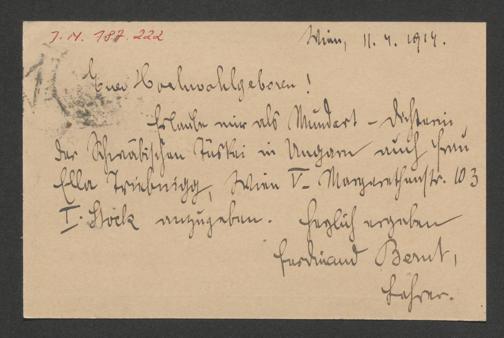 I. N. 187.222
Wien, 11. 4. 1914.
Euer Hochwohlgeboren!
Erlaube mir als Mundart-Dichterin
der Schwäbischen Türkei in Ungarn auch Frau
Ella Triebnigg, Wien V- Margarethenstr. 103
I. Stock anzugeben. Höflich ergeben
Ferdinand Bernt,
Lehrer.